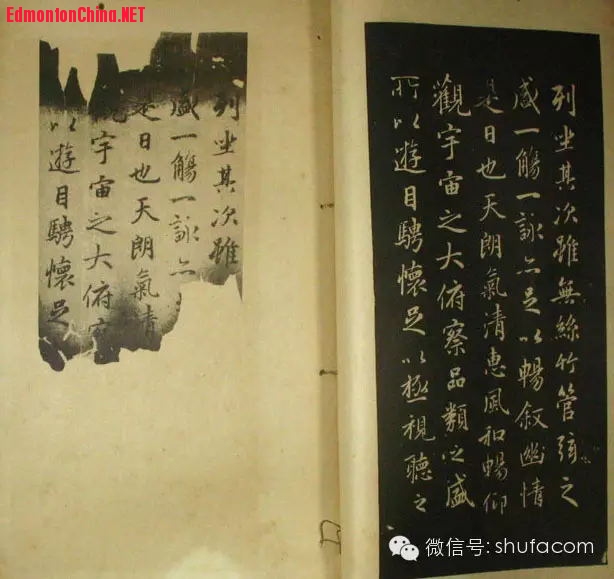 EdmontonChina.NET
列坐其次雖無絲竹管弦之
盛一觴一詠亦足以暢叙幽情
是日也天朗氣清惠風和暢仰
觀宇宙之大俯察品類之盛
所以遊目騁懷足以極視聽之
列坐其次雖
盛一觴一詠亦
是日也天朗氣清
觀宇宙之大俯察
以遊目騁懷足
微信号: shufacom